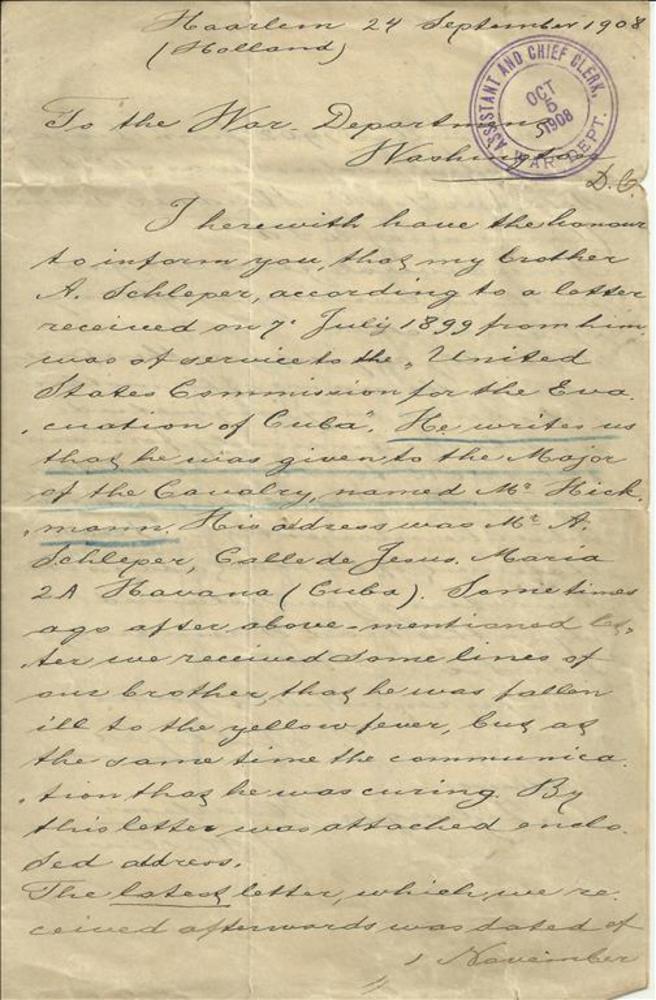 Haarlem 24 September 1908
(Holland)
ASSISTANT AND CHIEF CLERK,
OCT
5
1908
WAR DEPT.
To the War-Department
Washington
D.C.
I herewith have the honour
to inform you, that my brother
A. Schleper, according to a letter
received on 7e July 1899 from him,
was of service to the „United
States Commission for the Eva-
cuation of Cuba". He writes us
that he was given to the Major
of the Cavalry, named Mr Hick-
mann. His address was Mr A.
Schleper, Calle de Jesus. Maria
2A Havana (Cuba). Some times
ago after above-mentioned let-
ter we received some lines of
our brother, that he was fallen
ill to the yellow fever, but at
the same time the communica-
tion that he was curing. By
this letter was attached enclo-
sed address.
The latest letter, which we re-
ceived afterwards was dated of
1 November